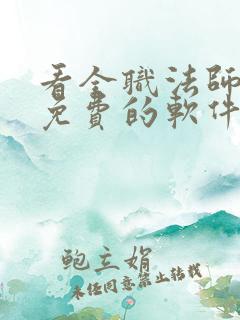 看全職法師
免費的軟件
鲍立娟
未经同意禁止转载